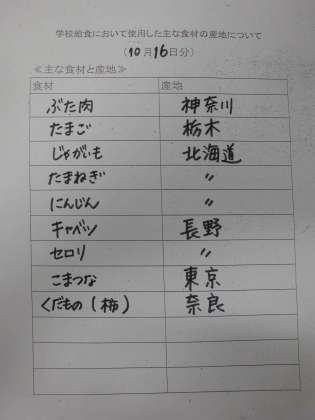 学校給食において使用した主な食材の産地について
(10月16日分)
≪主な食材と産地≫
食材 産地
ぶた肉 神奈川
たまご 栃木
じゃがいも 北海道
たまねぎ 〃
にんじん 〃
キャベツ 長野
セロリ 〃
こまつな 東京
くだもの(柿) 奈良